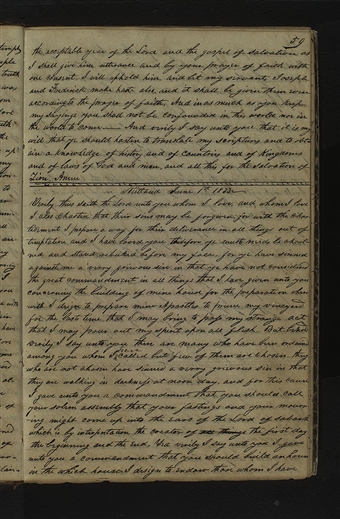 59
the acceptable year of the Lord and the gospel of salvation as
I shall give him utterance and by your prayer of faith with
one consent I will uphold him and let my servants Joseph
and Frederick make haste also and it shall be given them even
according to the prayer of faith, And inasmuch as you keep
my sayings you shall not be confounded in this world nor in
the world to come And verily I say unto you that it is my
will that ye should hasten to translate my scriptures and to obt
ain a knowledge of history and of countries and of kingdoms
and of laws of God and man and all this for the salvation of
Zion Amen
Kirtland June 1st 1833
Verily thus saith the Lord unto you whom I love, and whom I love
I also chasten that their sins may be forgiven for with the chas
tisement I prepare a way for their deliverance in all things out of
temptation and I have loved you therefore ye must needs be chast
ned and stand rebuked before my face, for ye have sinned
against me a very grievous sin in that ye have not considered
the great commandment in all things that I have given unto you
concerning the building of mine house for the preparation where
with I design to prepare mine Apostles to prune my vineyard
for the last time that I may bring to pass my strange act
that I may pour out my spirit upon all flesh But behold
verily I say unto you there are many who have been ordained
among you whom I called but few of them are chosen, they
who are not chosen have sinned a very grievous sin in that
they are walking in darkness at noon day, and for this cause
I gave unto you a commandment that you should call
your solem assembly that your fastings and your mourn
ing might come up into the ears of the Lord of sabaoth
which is by interpretation the creator of the first day
the beginning and the end, Yea verily I say unto you I gave
unto you a commandment that you should build an house
in the which house I design to endow those whom I have